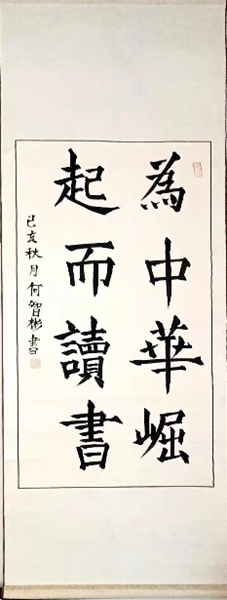 為中華崛
起而讀書
己亥秋月何智彬書